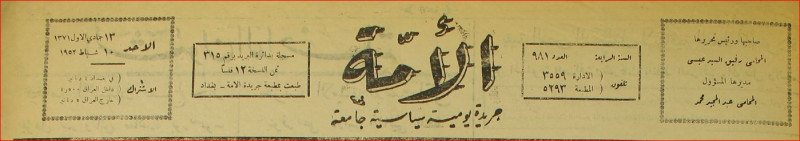 صاحبها ورئيس تحريرها
المحامي رفيق السيد عيسى
مديرها المسؤول
المحامي عبد المجيد محمد
السنة الرابعة العدد ٩٨١
تلفون ( الادارة ٣٥٥٩
( المطبعة ٥٢٩٣
الأمة
جريدة يومية سياسية جامعة
مسجلة بدائرة البريد برقم ٣١٥
ثمن النسخة ١٢ فلساً
طبعت بمطبعة جريدة الامة - بغداد
الاحد
١٣ جمادي الاول ١٣٧١
١٠ شباط ١٩٥٢
الاشتراك
في بغداد
داخل العراق
خارج العراق